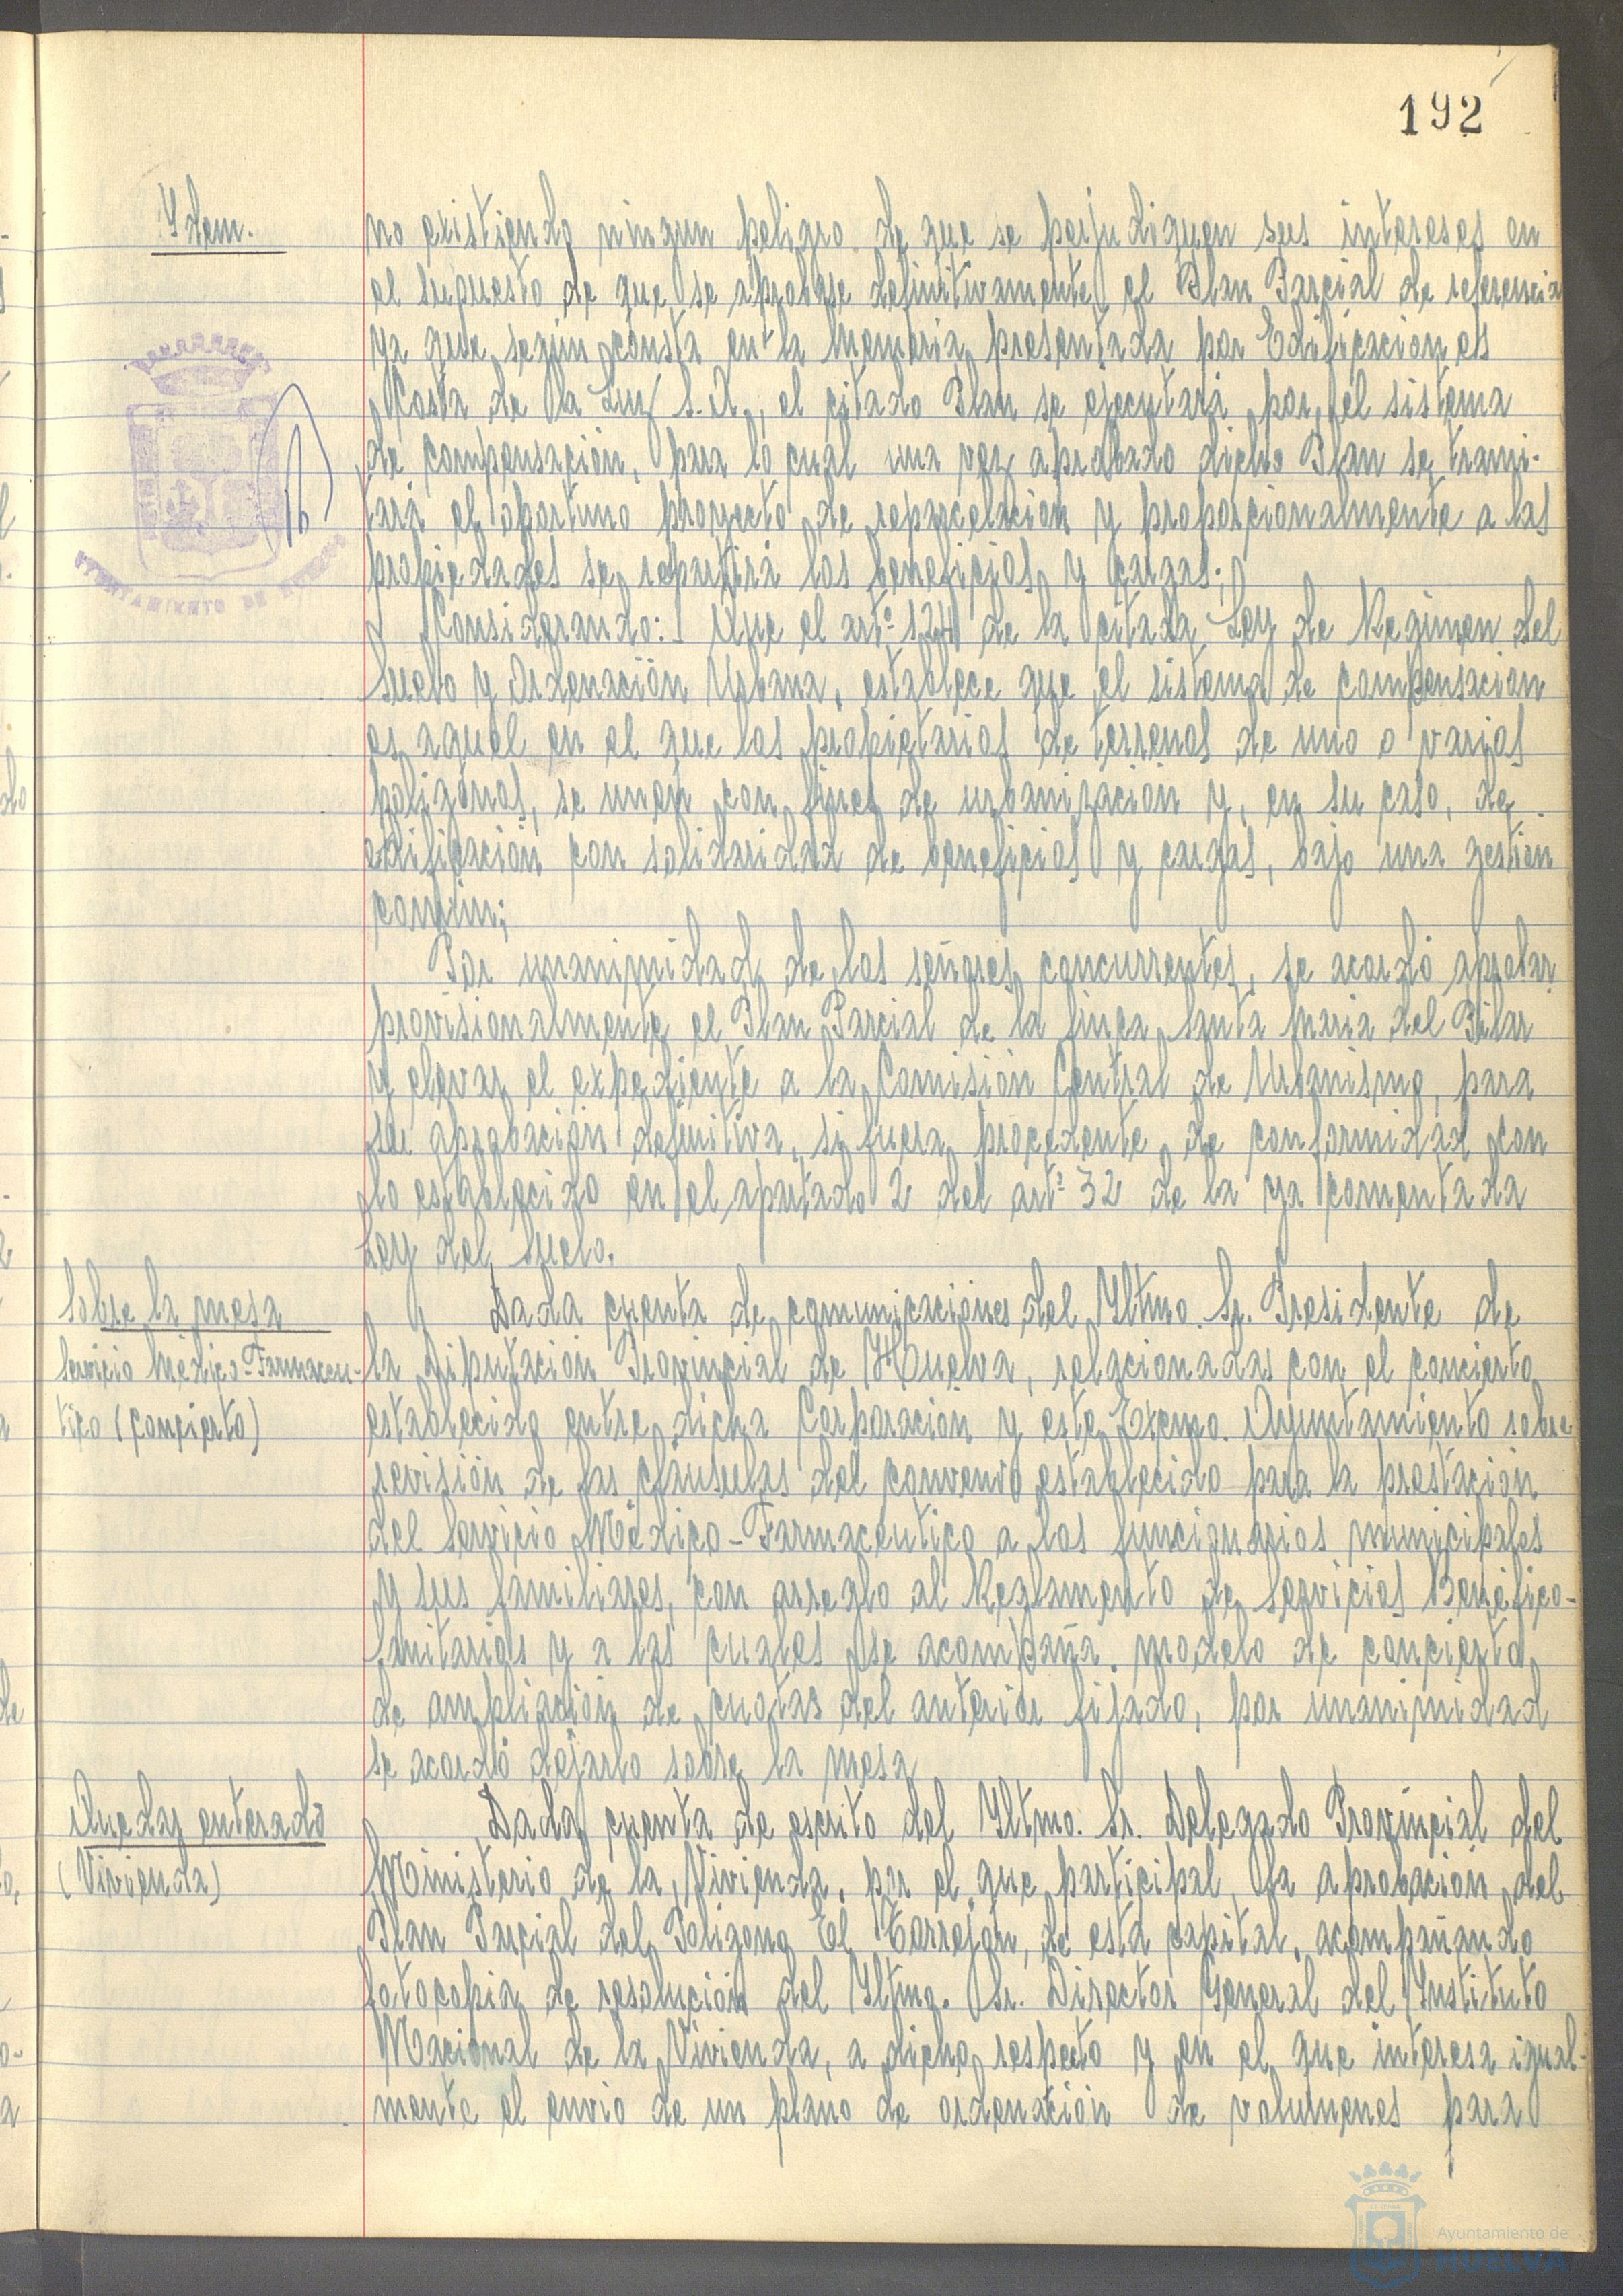 192
Ydem.
no existiendo ningun peligro de que se perjudiquen sus intereses en
el supuesto de que se aprobase definitivamente el Plan Parcial de referencia
ya que, según consta en la memoria presentada por Edificaciones
Costa de la Luz S.A., el citado Plan se ejecutará por el sistema
de compensación, para lo cual una vez aprobado dicho Plan se trami-
tará el oportuno proyecto de reparcelación y proporcionalmente a las
propiedades se repartirá los beneficios y cargas;
Considerando: Que el artº 124 de la citada Ley de Regimen del
Suelo y Ordenación Urbana, establece que el sistema de compensación
es aquel en el que los propietarios de terrenos de uno o varios
poligonos, se unen con fines de urbanización y, en su caso, de
edificación con solidaridad de beneficios y cargas, bajo una gestion
común;
Por unanimidad de los señores concurrentes, se acordó aprobar
provisionalmente el Plan Parcial de la finca Santa Maria del Pilar
y elevar el expediente a la Comisión Central de Urbanismo, para
su aprobación definitiva, si fuera procedente, de conformidad con
lo establecido en el apartado 2 del artº 32 de la ya comentada
Ley del Suelo.
Sobre la mesa
Servicio Médico-Farmaceu-
tico (concierto)
Dada cuenta de comunicaciones del Yltmo. Sr. Presidente de
la Diputación Provincial de Huelva, relacionadas con el concierto
establecido entre dicha Corporación y este Excmo. Ayuntamiento sobre
revisión de las cláusulas del convenio establecido para la prestación
del Servicio Médico-Farmacéutico a los funcionarios municipales
y sus familiares, con arreglo al Reglamento de Servicios Benéfico-
Sanitarios y a las cuales se acompaña modelo de concierto
de ampliación de cuotas del anterior fijado, por unanimidad
se acordó dejarlo sobre la mesa
Quedar enterado
(Vivienda)
Dada cuenta de escrito del Yltmo. Sr. Delegado Provincial del
Ministerio de la Vivienda, por el que participa la aprobación del
Plan Parcial del Poligono El Torrejón, de esta capital, acompañando
fotocopia de resolución del Yltmo. Sr. Director General del Ynstituto
Nacional de la Vivienda, a dicho respecto y en el que interesa igual-
mente el envio de un plano de ordenación de volumenes para
AYUNTAMIENTO DE
Ayuntamiento de
HUELVA